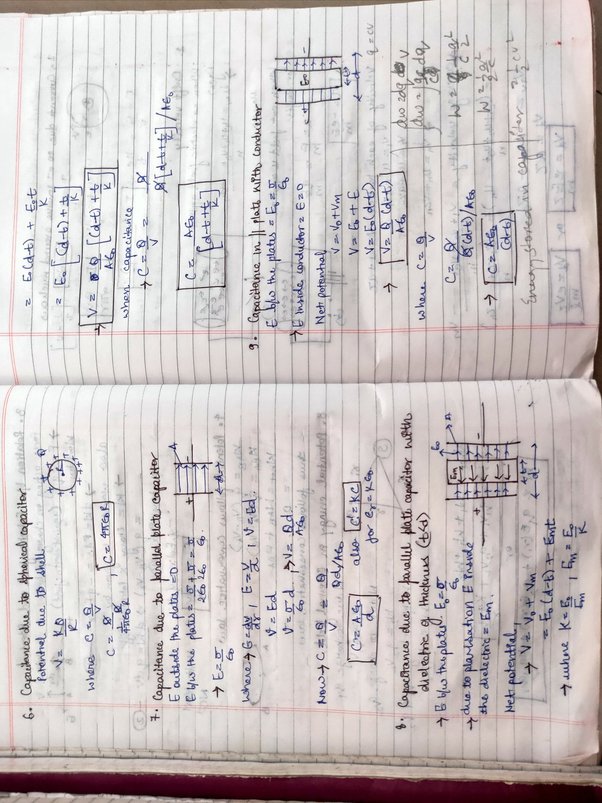 6. Capacitance due to spherical capacitor
Potential due to shell
V = KQ/R
where C = Q/V
C = Q / (1/4πε0 Q/R) , C = 4πε0R
Q
R
7. Capacitance due to parallel plate capacitor
E outside the plates = 0
E b/w the plates = σ/2ε0 + σ/2ε0 = σ/ε0.
→ E = σ/ε0
+ - A
d
where → E = dv/dr , E = V/d , V = Ed.
V = Ed
V = σ/ε0 d , → V = Qd/Aε0
Now → C = Q/V = Q / Qd/Aε0
C = Aε0/d also C' = KC
for εr = Kε0.
8. Capacitance due to parallel plate capacitor with
dielectric of thickness (t<d)
→ E b/w the plates E0 = σ/ε0
→ due to polarisation E inside
the dielectric = Em.
Net potential,
→ V = V0 + Vm
= E0 (d-t) + Emt
→ where K = E0/Em , Em = E0/K
E0
Em
A
+ -
t
d
= E0(d-t) + E0t/K
= E0 [(d-t) + t/K]
→ V = Q/Aε0 [(d-t) + t/K]
when capacitance
→ C = Q/V = Q / Q[d-t+t/K] /Aε0
C = Aε0 / [d-t+t/K]
9. Capacitance in || plate with conductor
E b/w the plates = E0 = σ/ε0
→ E inside conductor = E = 0
Net potential,
V = V0 + Vm
V = E0 + E
V = E0(d-t)
→ V = Q/Aε0 (d-t)
+ -
E=0
t
d
where C = Q/V
C = Q / Q(d-t)/Aε0
→ C = Aε0/(d-t)
q = cv
dw = dq V
W = 1/c q²/2
W = 1/2 q²/c
= 1/2 cv²
Energy stored in capacitor